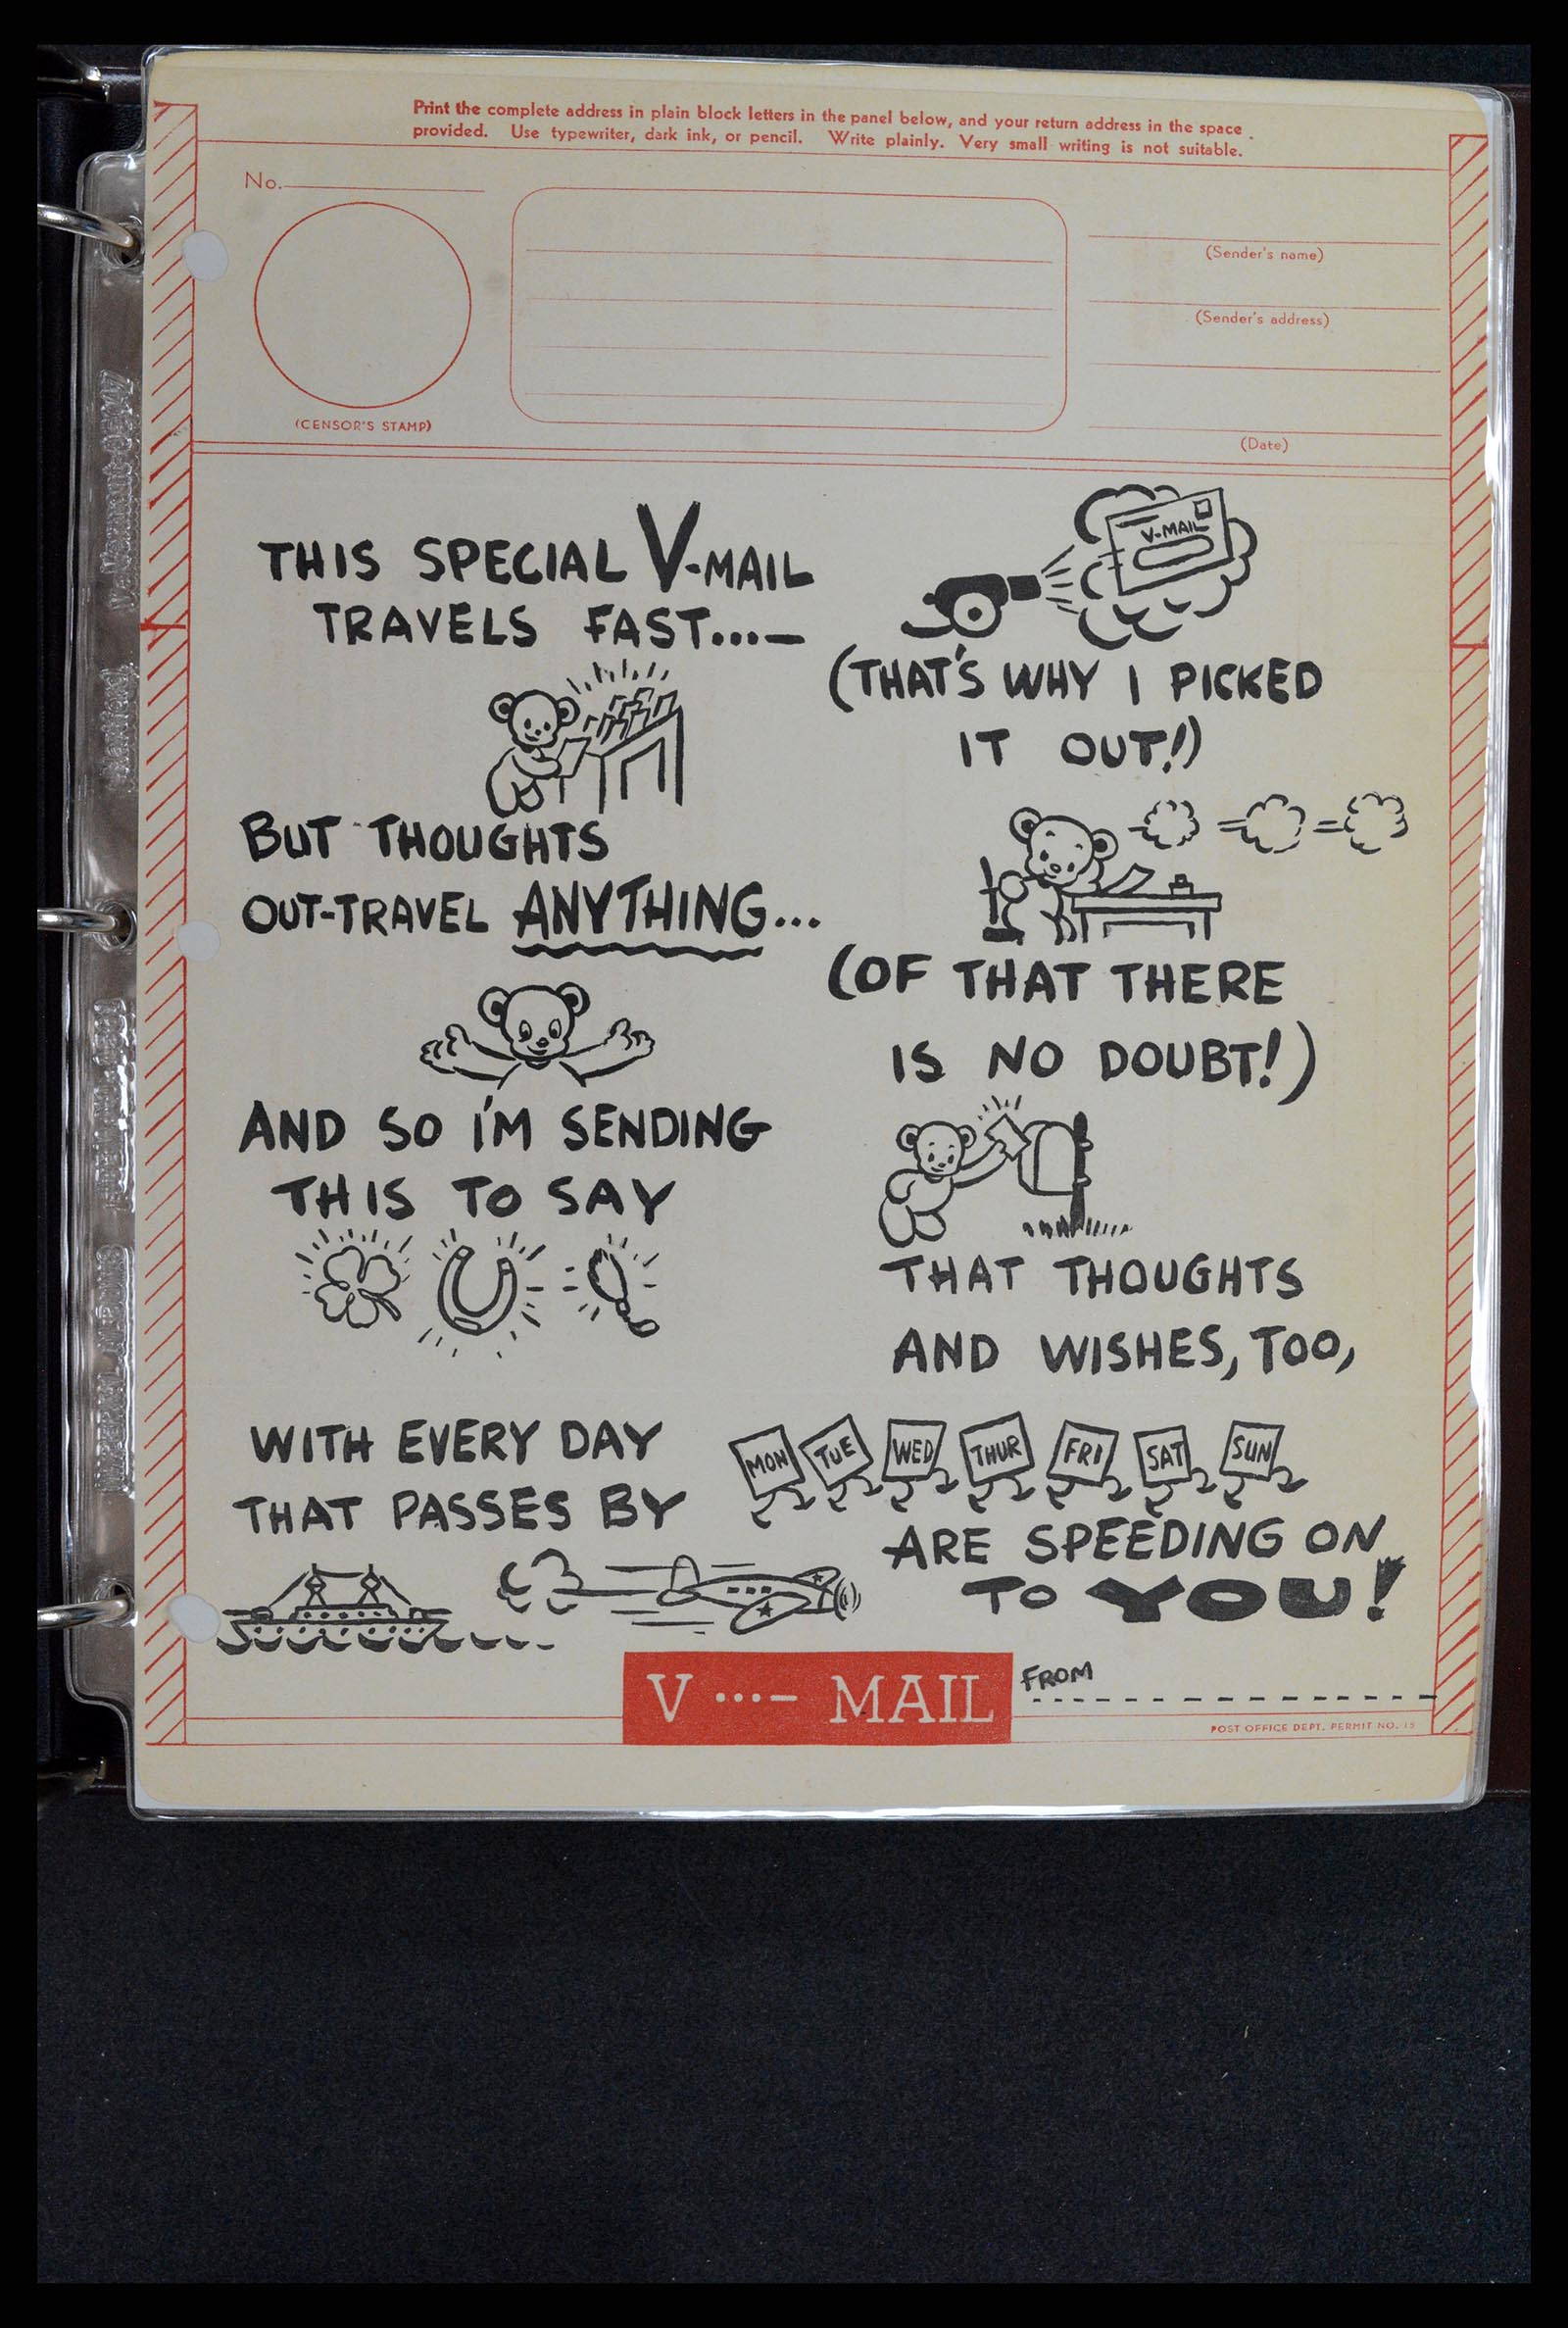 Print the complete address in plain block letters in the panel below, and your return address in the space
provided. Use typewriter, dark ink, or pencil. Write plainly. Very small writing is not suitable.
No.
(CENSOR'S STAMP)
(Sender's name)
(Sender's address)
(Date)
THIS SPECIAL V-MAIL
TRAVELS FAST...—
V-MAIL
(THAT'S WHY I PICKED
IT OUT!)
BUT THOUGHTS
OUT-TRAVEL ANYTHING...
(OF THAT THERE
IS NO DOUBT!)
AND SO I'M SENDING
THIS TO SAY
THAT THOUGHTS
AND WISHES, TOO,
WITH EVERY DAY
THAT PASSES BY
MON TUE WED THUR FRI SAT SUN
ARE SPEEDING ON
TO YOU!
V ...— MAIL
FROM
POST OFFICE DEPT. PERMIT NO. 15